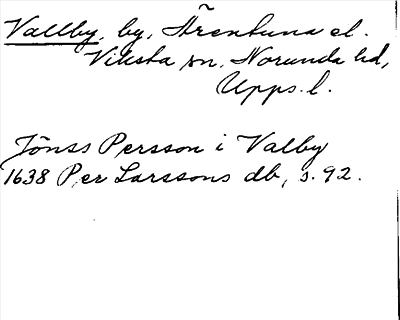 Vallby, by, Ärentuna el.
Viksta sn, Norunda hd,
Upps. l.
Jönss Persson i Valby
1638 Per Larssons db, s. 92.